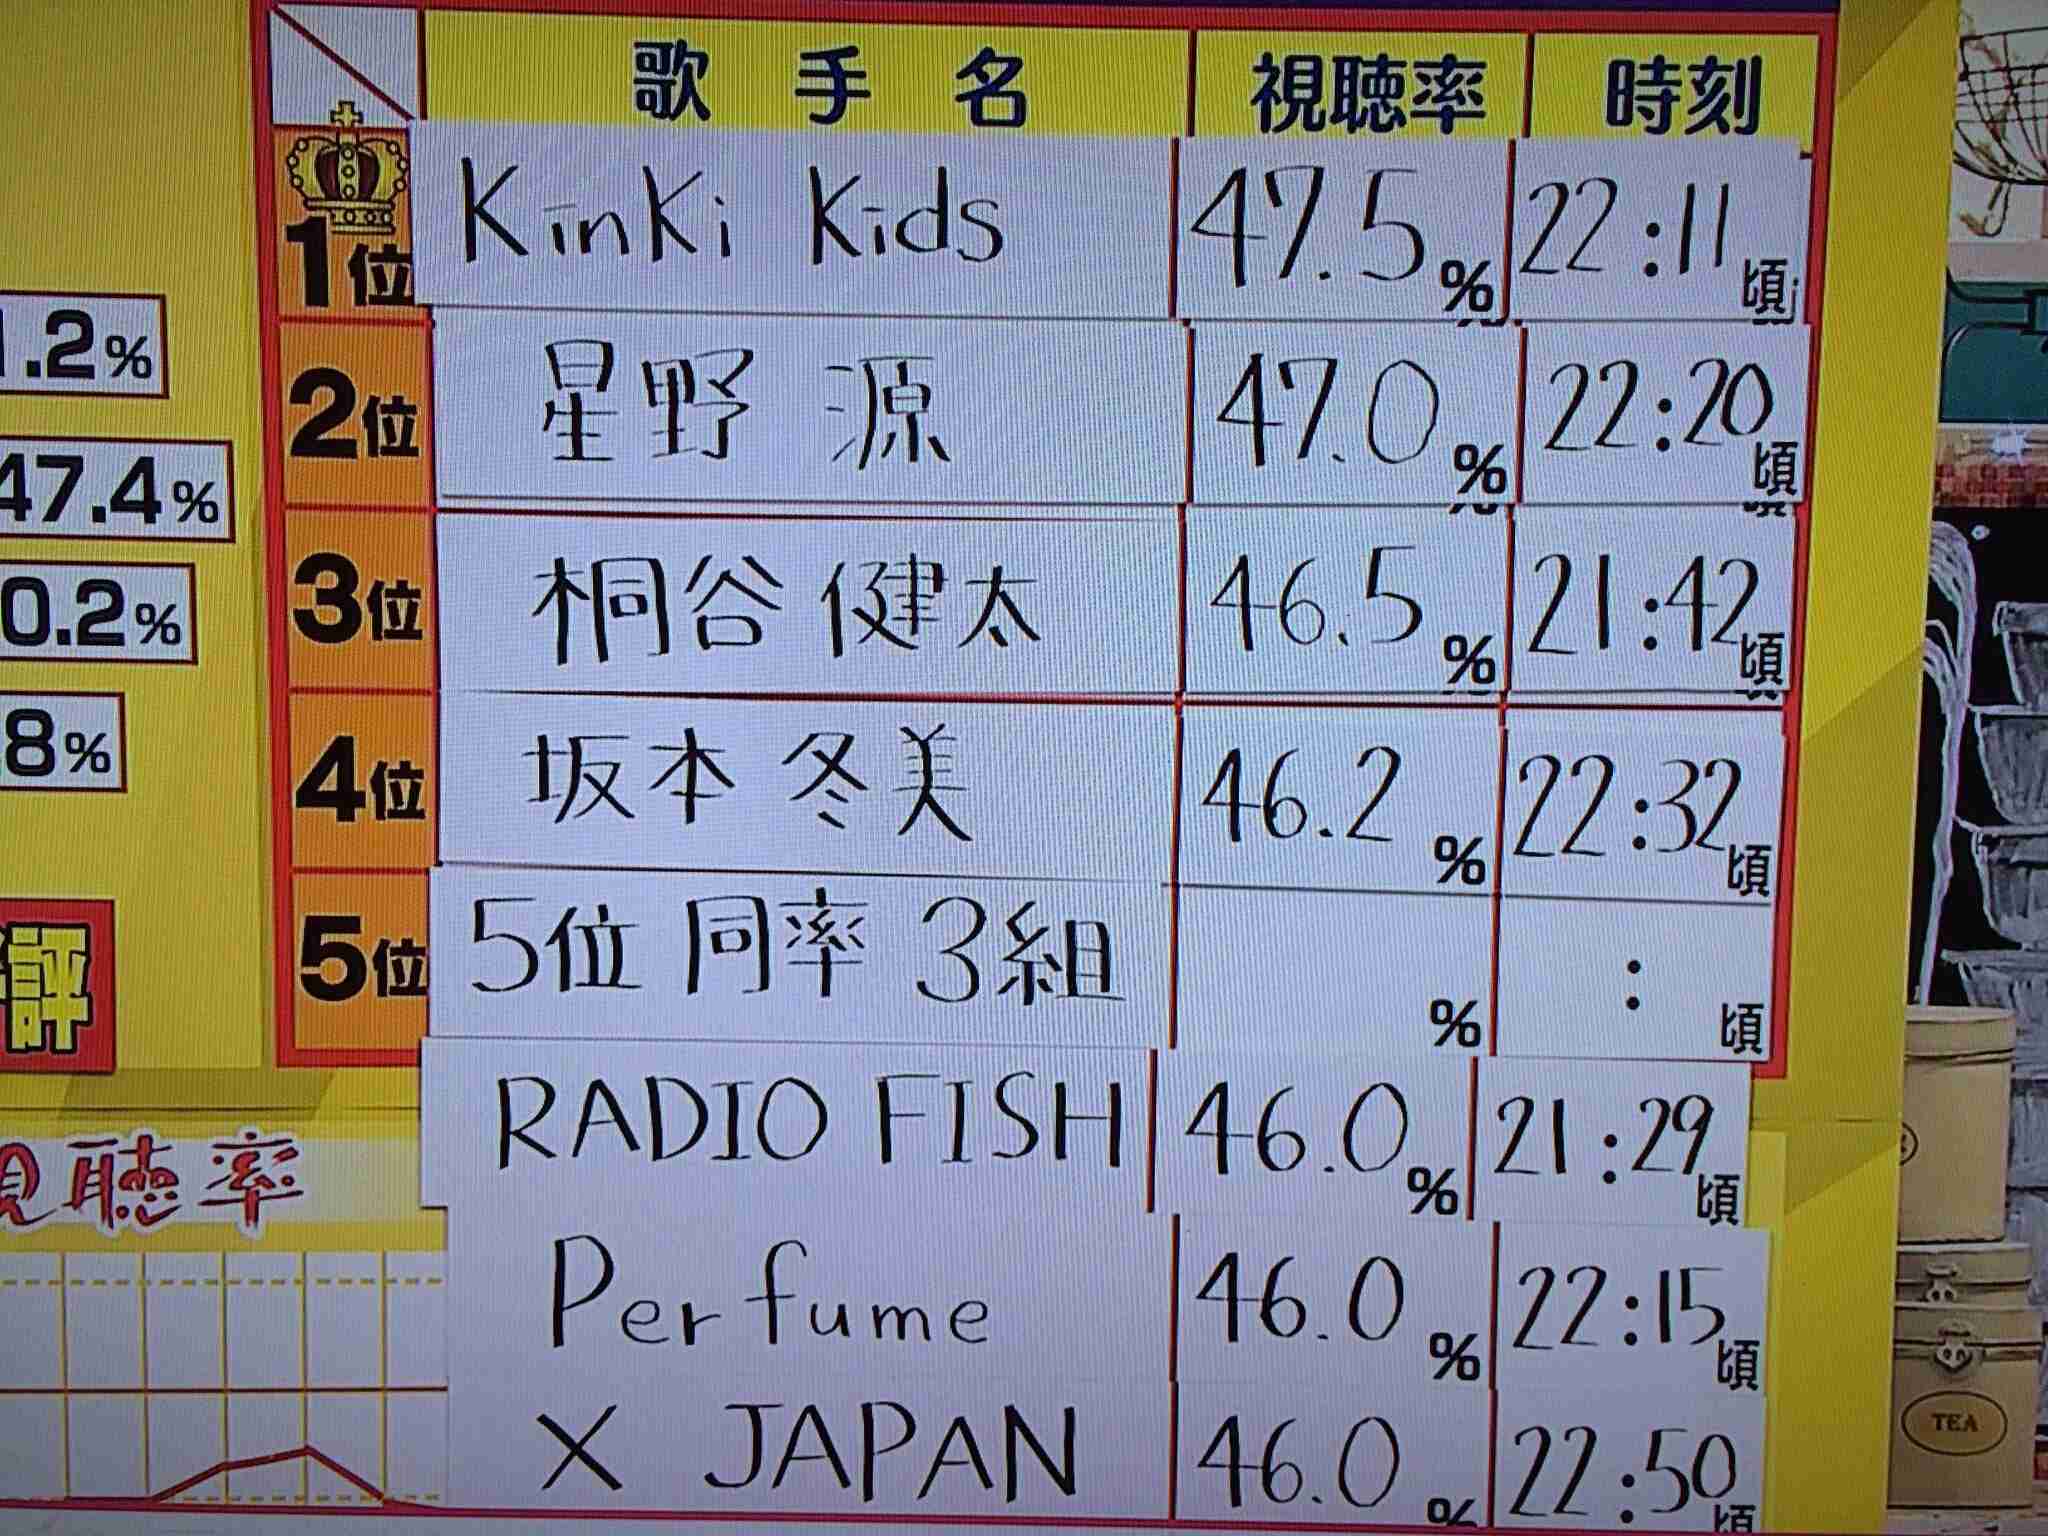 歌手名 視聴率 時刻
1位 KinKi Kids 47.5% 22:11頃
2位 星野 源 47.0% 22:20頃
3位 桐谷 健太 46.5% 21:42頃
4位 坂本 冬美 46.2% 22:32頃
5位 5位 同率 3組 % : 頃
RADIO FISH 46.0% 21:29頃
Perfume 46.0% 22:15頃
X JAPAN 46.0% 22:50頃
.2%
47.4%
0.2%
8%
評
視聴率
TEA